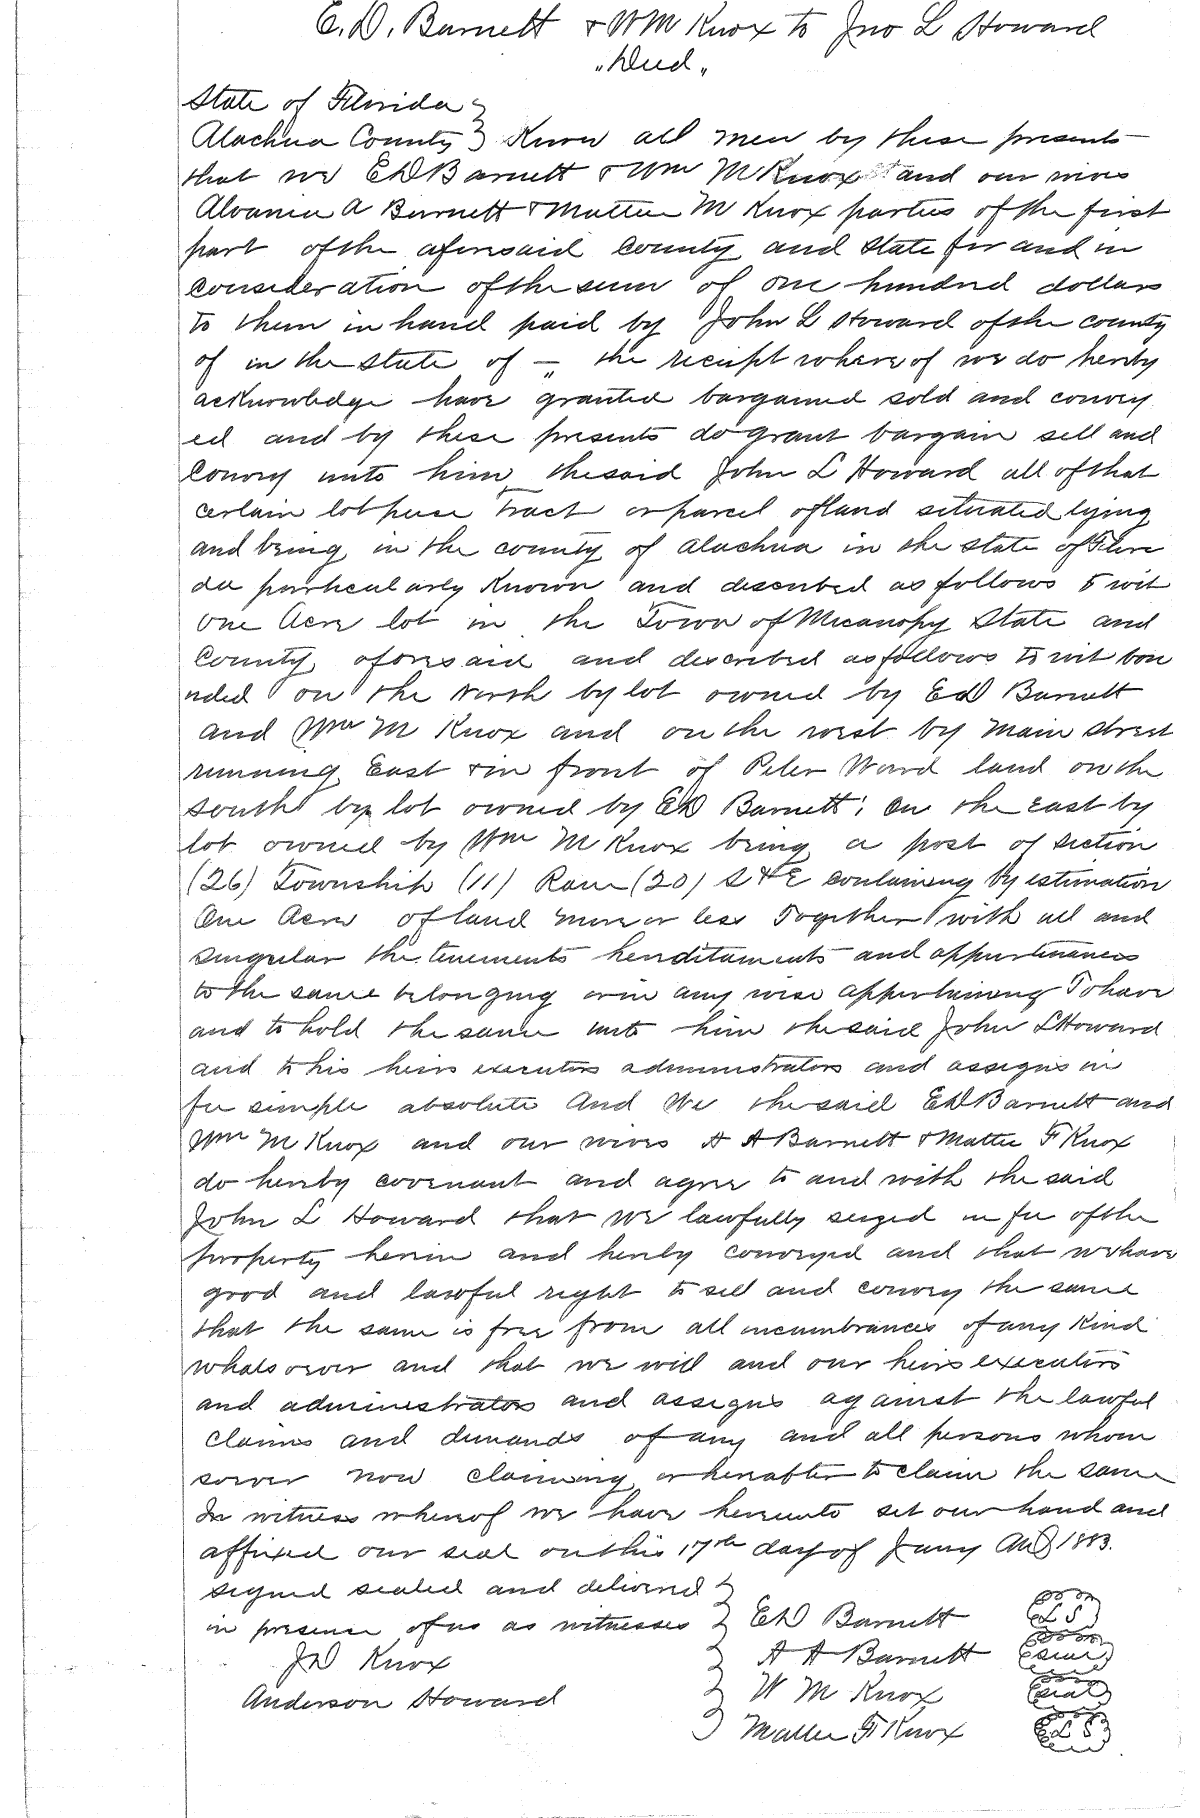 E. D. Barnett & WM Knox to Jno L Howard
"Deed"
State of Florida }
Alachua County } Know all men by these presents
that we E D Barnett & Wm M Knox and our wives
Alvania A Barnett & Mattie M Knox parties of the first
part of the aforesaid County and State for and in
consideration of the sum of one hundred dollars
to them in hand paid by John L Howard of the county
of in the State of — " the receipt where of we do hereby
acknowledge have granted bargained sold and convey
ed and by these presents do grant bargain sell and
Convey unto him the said John L Howard all of that
certain lot piece Tract or parcel of land situated lying
and being in the county of Alachua in the state of Flori
da particularly Known and described as follows to wit
One Acre lot in the Town of Micanopy State and
County aforesaid and described as follows to wit bou
nded on the North by lot owned by E D Barnett
and Wm M Knox and on the west by Main Street
running East & in front of Peter Ward land on the
South by lot owned by E D Barnett; On the East by
lot owned by Wm M Knox being a part of Section
(26) Township (11) Rang (20) S & E containing by estimation
One Acre of land more or less Together with all and
singular the tenements hereditaments and appurtenances
to the same belonging or in any wise appertaining To have
and to hold the same unto him the said John L Howard
and to his heirs executors administrators and assigns in
fee simple absolute And We the said E D Barnett and
Wm M Knox and our wives A A Barnett & Mattie F Knox
do hereby covenant and agree to and with the said
John L Howard that we lawfully seized in fee of the
property herein and hereby conveyed and that we have
good and lawful right to sell and convey the same
that the same is free from all incumbrances of any Kind
whatsoever and that we will and our heirs executors
and administrators and assigns against the lawful
claims and demands of any and all persons whom
soever now claiming or hereafter to claim the same
In witness whereof we have hereunto set our hand and
affixed our seal on this 17th day of Jany AD 1883.
signed sealed and delivered }
in presence of us as witnesses } E D Barnett L S
J D Knox } A A Barnett seal
Anderson Howard } W M Knox seal
} Mattie F Knox L S